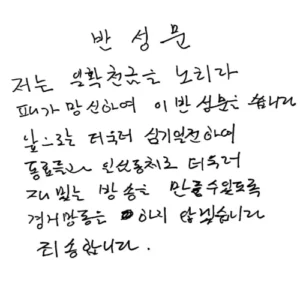 반 성 문
저는 일확천금을 노리다
패가망신하여 이 반성문을 씁니다
앞으로는 더욱더 심기일전하여
동료들과 일심동체로 더욱더
재밌는 방송을 만들수있도록
경거망동은 하지 않겠습니다
죄송합니다.